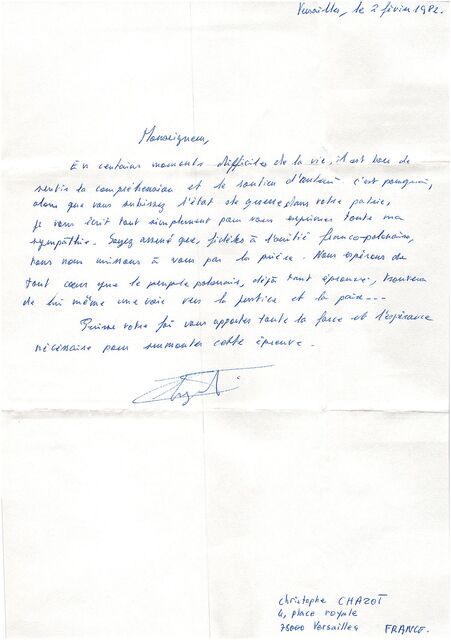 Versailles, le 2 février 1982.
Monseigneur,
En certains moments difficiles de la vie, il est bon de
sentir la compréhension et le soutien d'autrui c'est pourquoi,
alors que vous subissez l'état de guerre dans votre patrie,
je vous écrit tout simplement pour vous exprimer toute ma
sympathie. Soyez assuré que, fidèles à l'amitié franco-polonaise,
nous nous unissons à vous par la prière. Nous espérons de
tout cœur que le peuple polonais, déjà tant éprouvé, trouvera
de lui même une voie vers la justice et la paix...
Puisse votre foi vous apporter toute la force et l'espérance
nécessaire pour surmonter cette épreuve.
Christophe CHAZOT
4, place royale
78000 Versailles FRANCE.